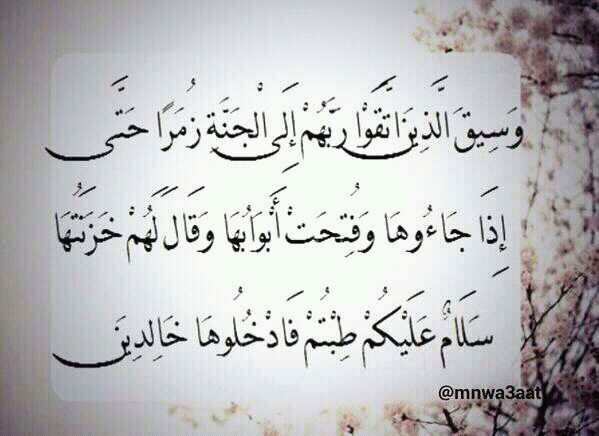 وَسِيقَ الَّذِينَ اتَّقَوْا رَبَّهُمْ إِلَى الْجَنَّةِ زُمَرًا حَتَّى
إِذَا جَاءُوهَا وَفُتِحَتْ أَبْوَابُهَا وَقَالَ لَهُمْ خَزَنَتُهَا
سَلَامٌ عَلَيْكُمْ طِبْتُمْ فَادْخُلُوهَا خَالِدِينَ
@mnwa3aat